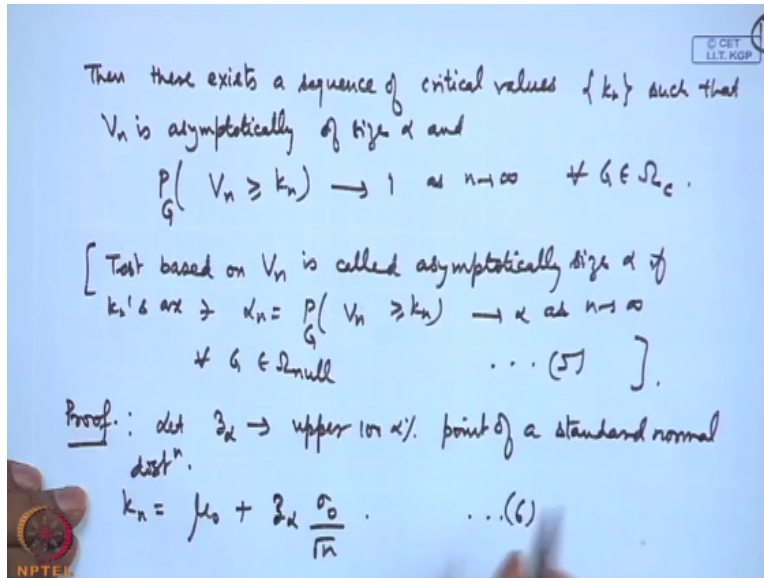 © CET
I.I.T. KGP
Then there exists a sequence of critical values {kₙ} such that
Vₙ is asymptotically of size α and
P_G( Vₙ ≥ kₙ) → 1 as n→∞ ∀ G ∈ Ω_c.
[ Test based on Vₙ is called asymptotically size α if
kₙ's are ∋ αₙ = P_G( Vₙ ≥ kₙ) → α as n→∞
∀ G ∈ Ω_null ... (5) ].
Proof.: Let z_α → upper 100 α% point of a standard normal
distⁿ.
kₙ = μ₀ + z_α σ₀/√n . ...(6)
NPTEL